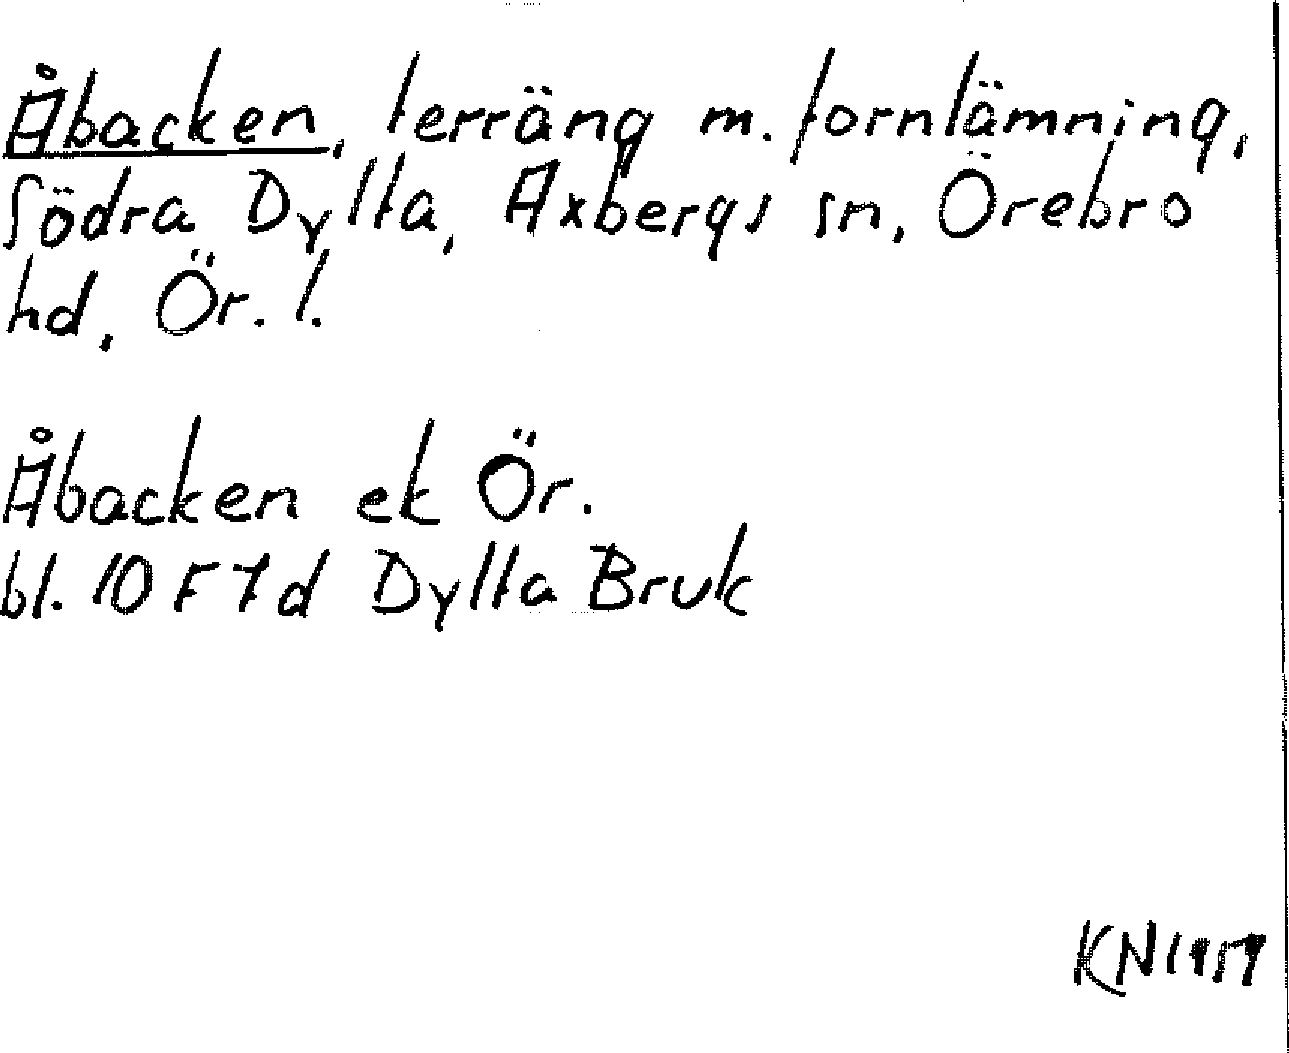 Åbacken, terräng m. fornlämning,
Södra Dylta, Axbergs sn, Örebro
hd, Ör. l.
Åbacken ek Ör.
bl. 10 F 7d Dylta Bruk